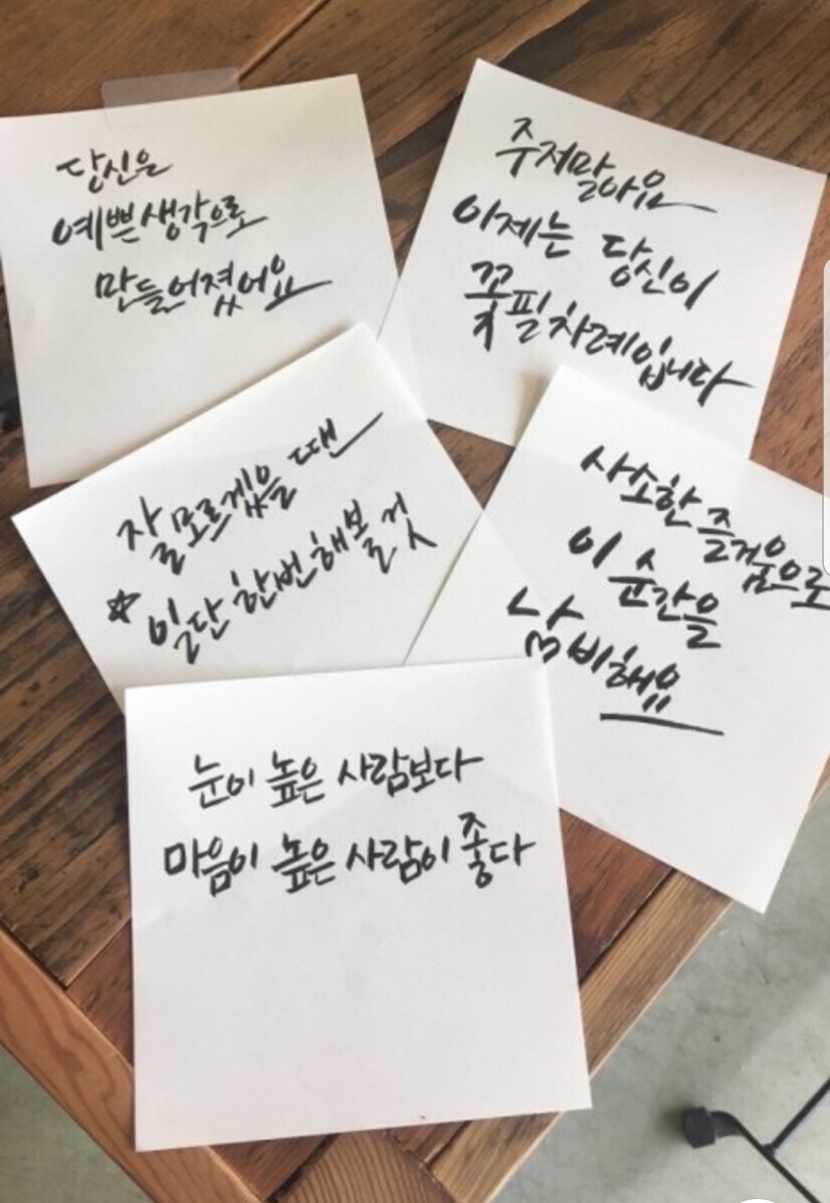 당신은
예쁜생각으로
만들어졌어요
주저말아요
이제는 당신이
꽃필차례입니다
잘모르겠을 땐
☆ 일단 한번 해볼 것
사소한 즐거움으로
이 순간을
낭비해요
눈이 높은 사람보다
마음이 높은 사람이 좋다